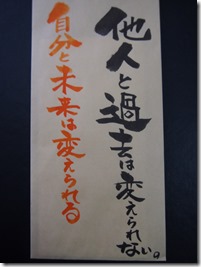 他人と過去は変えられない。
自分と未来は変えられる